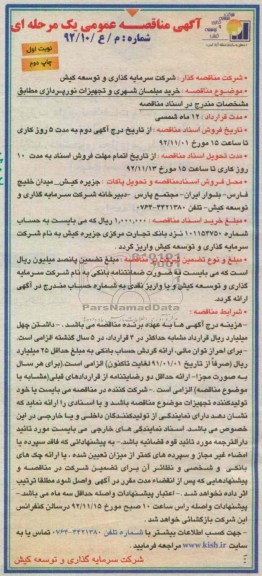 آگهی مناقصه عمومی یک مرحله ای
شماره: م / ع / ۹۲/۱۰
نوبت اول
چاپ دوم
• شرکت مناقصه گذار : شرکت سرمایه گذاری و توسعه کیش
• موضوع مناقصه : خرید مبلمان شهری و تجهیزات نورپردازی مطابق
مشخصات مندرج در اسناد مناقصه
• مدت قرارداد : ۱۲ ماه شمسی
• تاریخ فروش اسناد مناقصه : از تاریخ درج آگهی دوم به مدت ۵ روز کاری
تا ساعت ۱۵ مورخ ۹۲/۱۱/۰۱
• مدت تحویل اسناد مناقصه : از تاریخ اتمام مهلت فروش اسناد به مدت ۱۰
روز کاری تا ساعت ۱۵ مورخ ۹۲/۱۱/۱۳
• محل فروش اسناد مناقصه و تحویل پاکات : جزیره کیش_ میدان خلیج
فارس- بلوار ایران- مجتمع پارس -دبیرخانه شرکت سرمایه گذاری و
توسعه کیش- تلفن ۴۴۲۱۳۸۰-۰۷۶۴
• مبلغ خرید اسناد مناقصه : ۱,۰۰۰,۰۰۰ ریال که می بایست به حساب
شماره ۱۰۱۱۵۴۷۵۰ نزد بانک تجارت مرکزی جزیره کیش به نام شرکت
سرمایه گذاری و توسعه کیش واریز گردد.
• مبلغ و نوع تضمین شرکت در مناقصه : مبلغ تضمین پانصد میلیون ریال
است که می بایست به صورت ضمانتنامه بانکی به نام شرکت سرمایه
گذاری و توسعه کیش و یا واریز نقدی به شماره حساب مندرج در آگهی
ارائه گردد.
• شرایط مناقصه :
-هزینه درج آگهی ها به عهده برنده مناقصه می باشد. -داشتن چهل
میلیارد ریال قرارداد مشابه حداکثر در ۴ قرارداد، در ۵ سال گذشته الزامی است.
- برای احراز توان مالی، ارائه گردش حساب بانکی به مبلغ حداقل ۲۵ میلیارد
ریال (صرفاً از تاریخ ۹۱/۰۱/۰۱ لغایت تاکنون) الزامی است.(برای هر سال
به صورت مجزا- ارائه حداقل دو رضایتنامه از قراردادهای قبلی(مشابه با
موضوع مناقصه) الزامی است. -شرکت کننده در مناقصه می بایست یا خود
تولیدکننده تجهیزات موضوع مناقصه باشد و یا اسنادی را ارائه نماید که
نشان دهد دارای نمایندگی از تولیدکنندگان داخلی و یا خارجی در این
خصوص می باشد. اسناد نمایندگی های خارجی می بایست مورد تائید
دارالترجمه مورد تائید قوه قضائیه باشد.- به پیشنهاداتی که فاقد سپرده یا
امضاء غیر مجاز و سپرده های کمتر از میزان تعیین شده ، یا ارائه چک های
بانکی و شخصی و نظائر آن برای تضمین شرکت در مناقصه و
پیشنهادهایی که پس از انقضاء مدت مقرر در آگهی واصل شود مطلقا ترتیب
اثر داده نخواهد شد. - اعتبار پیشنهادات واصله حداقل سه ماه می باشد.-
پیشنهادات واصله راس ساعت ۱۰ صبح مورخ ۹۲/۱۱/۱۵ درسالن کنفرانس
این شرکت بازگشائی خواهد شد.
-جهت کسب اطلاعات بیشتر با شماره تلفن ۴۴۲۱۳۸۰-۰۷۶۴ تماس یا به
سایت www.kish.ir مراجعه فرمایید.
شرکت سرمایه گذاری و توسعه کیش
ParsNamadData